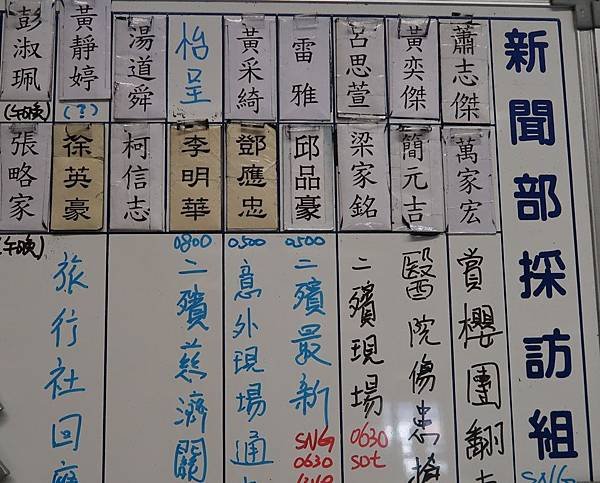 新聞部採訪組
SNG
蕭志傑
萬家宏
賞櫻團翻
黃奕傑
簡元吉
醫院傷患
呂思萱
梁家銘
二殯現場
0630
SOT
雷雅
邱品豪
0500
二殯最新
SNG
0630
黃采綺
鄧應忠
0500
意外現場通
怡呈
李明華
0800
二殯慈濟關
湯道舜
柯信志
黃靜婷
(?)
徐英豪
旅行社回應
彭淑珮
(午晚)
張略家
(午晚)